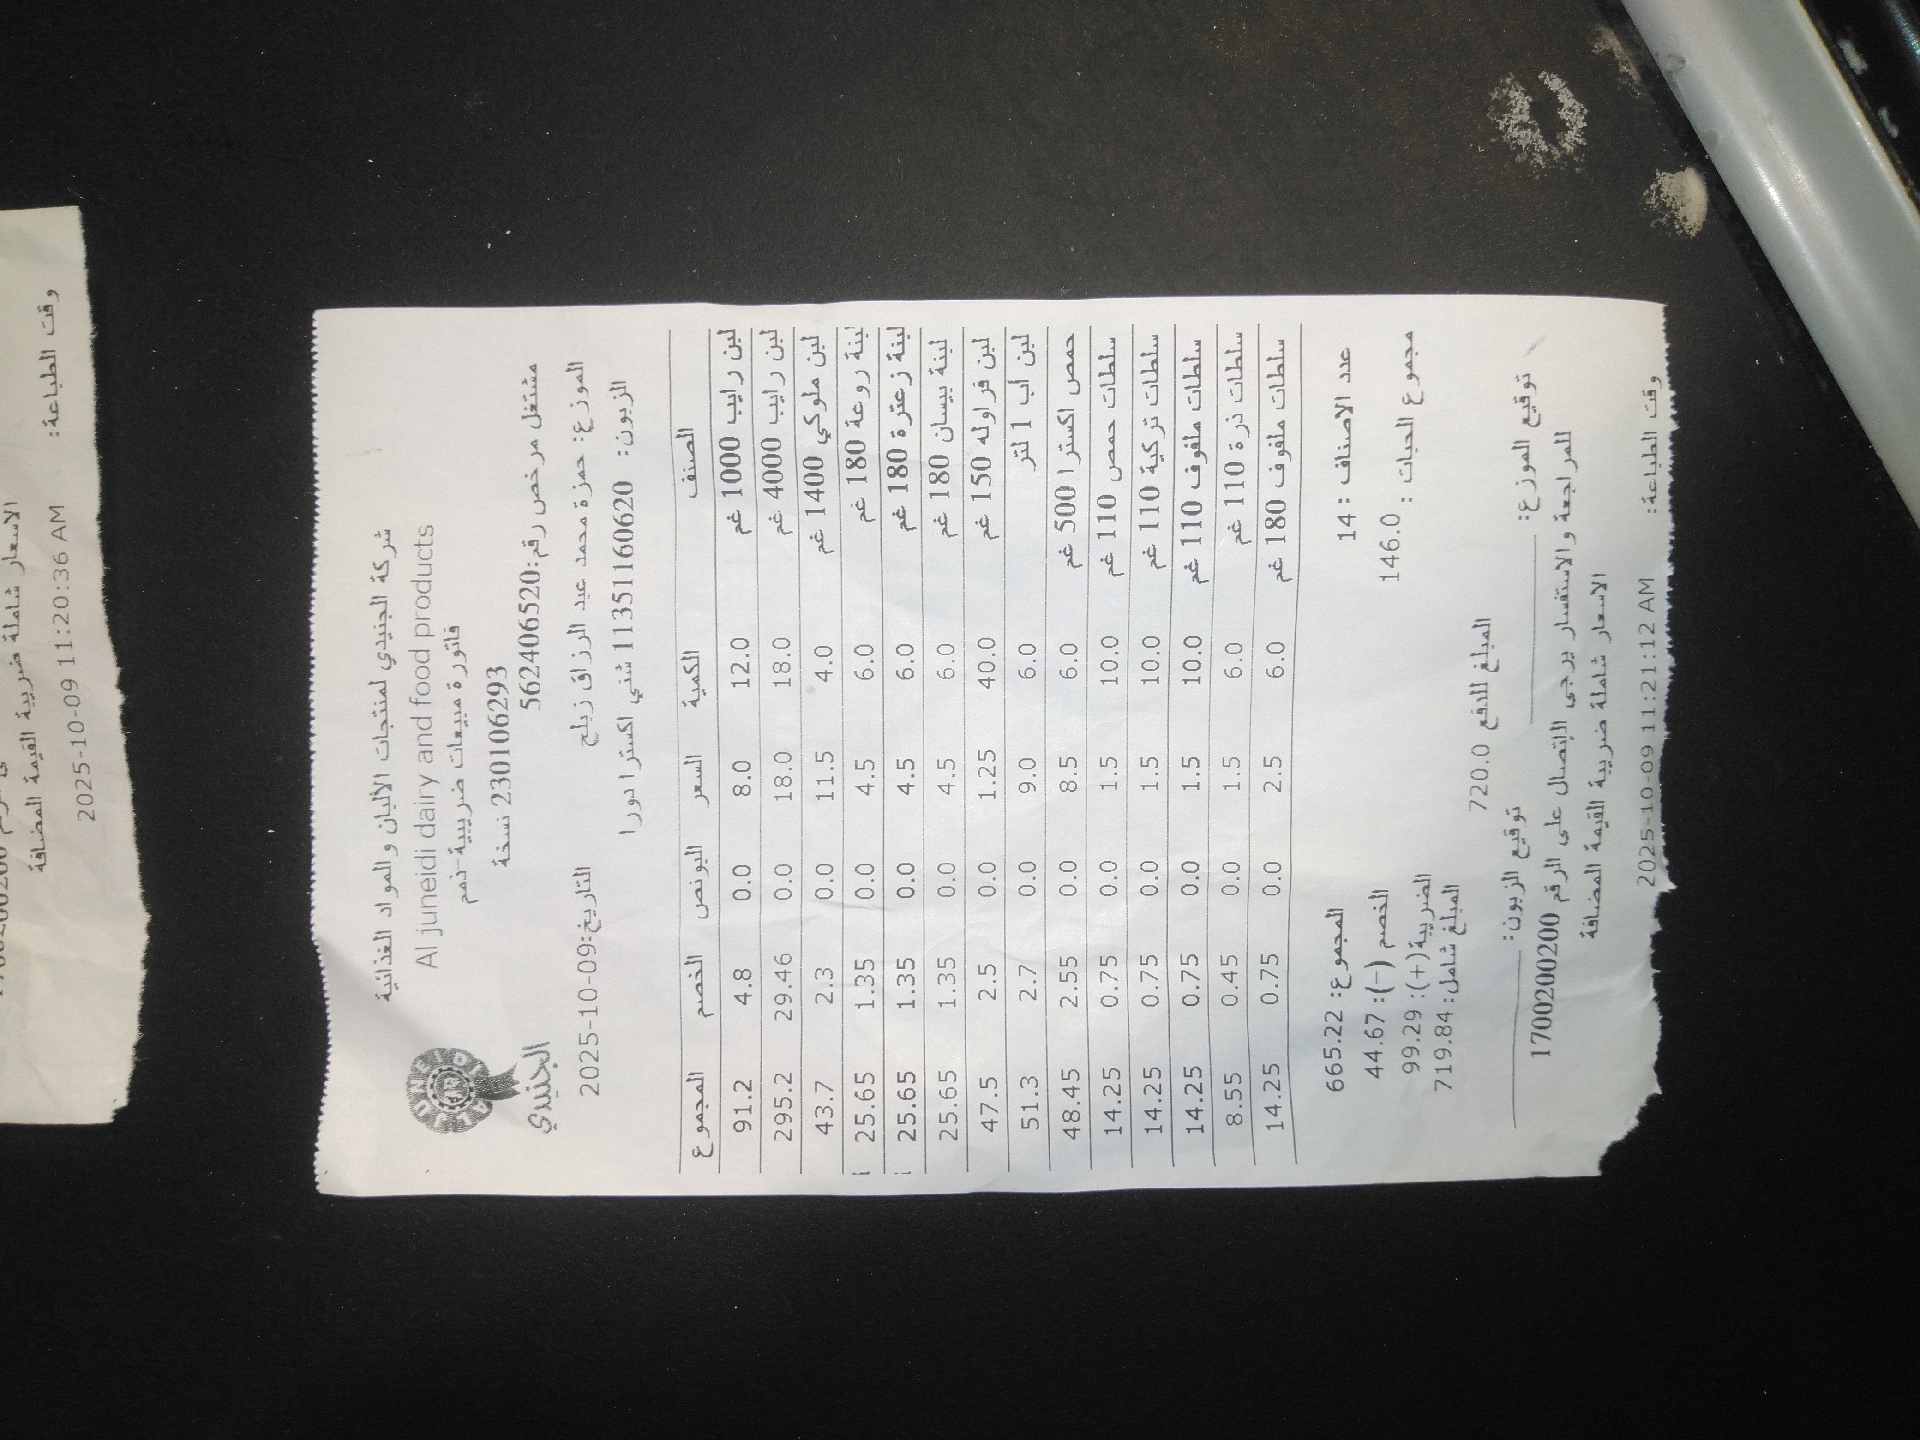 شركة الجنيدي لمنتجات الألبان والمواد الغذائية
Al juneidi dairy and food products
فاتورة مبيعات ضريبية-ذمم
230106293 نسخة
مشتغل مرخص رقم:562406520
الجنيدي
الموزع: حمزة محمد عبد الرزاق زبلح
التاريخ:2025-10-09
الزبون: 11351160620 شني اكسترا دورا
الصنف الكمية السعر البونص الخصم المجموع
لبن رايب 1000 غم 12.0 8.0 0.0 4.8 91.2
لبن رايب 4000 غم 18.0 18.0 0.0 29.46 295.2
لبن ملوكي 1400 غم 4.0 11.5 0.0 2.3 43.7
لبنة روعة 180 غم 6.0 4.5 0.0 1.35 25.65
لبنة زعترة 180 غم 6.0 4.5 0.0 1.35 25.65
لبنة بيسان 180 غم 6.0 4.5 0.0 1.35 25.65
لبن فراوله 150 غم 40.0 1.25 0.0 2.5 47.5
لبن اب 1 لتر 6.0 9.0 0.0 2.7 51.3
حمص اكسترا 500 غم 6.0 8.5 0.0 2.55 48.45
سلطات حمص 110 غم 10.0 1.5 0.0 0.75 14.25
سلطات تركية 110 غم 10.0 1.5 0.0 0.75 14.25
سلطات ملفوف 110 غم 10.0 1.5 0.0 0.75 14.25
سلطات ذرة 110 غم 6.0 1.5 0.0 0.45 8.55
سلطات ملفوف 180 غم 6.0 2.5 0.0 0.75 14.25
عدد الاصناف : 14 المجموع: 665.22
مجموع الحبات : 146.0 الخصم (-): 44.67
الضريبة(+): 99.29
المبلغ شامل: 719.84
المبلغ للدفع 720.0
توقيع الموزع: توقيع الزبون:
للمراجعة والاستفسار يرجى الاتصال على الرقم 1700200200
الاسعار شاملة ضريبة القيمة المضافة
وقت الطباعة: 2025-10-09 11:21:12 AM
الاسعار شاملة ضريبة القيمة المضافة
وقت الطباعة: 2025-10-09 11:20:36 AM